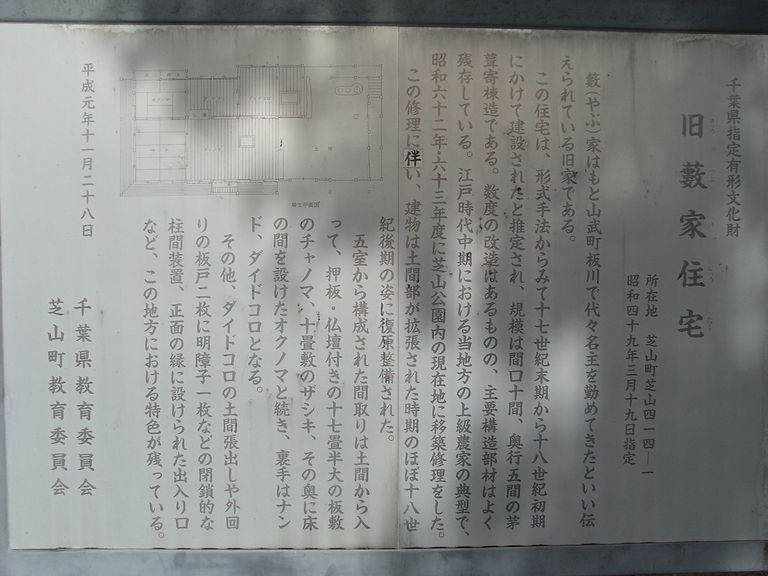 千葉県指定有形文化財
旧藪家住宅
所在地　芝山町芝山四一四―一
昭和四十九年三月十九日指定
藪(やぶ)家はもと山武町板川で代々名主を勤めてきたといい伝
えられている旧家である。
この住宅は、形式手法からみて十七世紀末期から十八世紀初期
にかけて建設されたと推定され、規模は間口十間、奥行五間の茅
葺寄棟造である。数度の改造はあるものの、主要構造部材はよく
残存している。江戸時代中期における当地方の上級農家の典型で、
昭和六十二年・六十三年度に芝山公園内の現在地に移築修理をした。
この修理に伴い、建物は土間部が拡張された時期のほぼ十八世
紀後期の姿に復原整備された。
五室から構成された間取りは土間から入
って、押板・仏壇付きの十七畳半大の板敷
のチャノマ、十畳敷のザシキ、その奥に床
の間を設けたオクノマと続き、裏手はナン
ド、ダイドコロとなる。
その他、ダイドコロの土間張出しや外回
りの板戸二枚に明障子一枚などの閉鎖的な
柱間装置、正面の縁に設けられた出入り口
など、この地方における特色が残っている。
竣工平面図
平成元年十一月二十八日
千葉県教育委員会
芝山町教育委員会